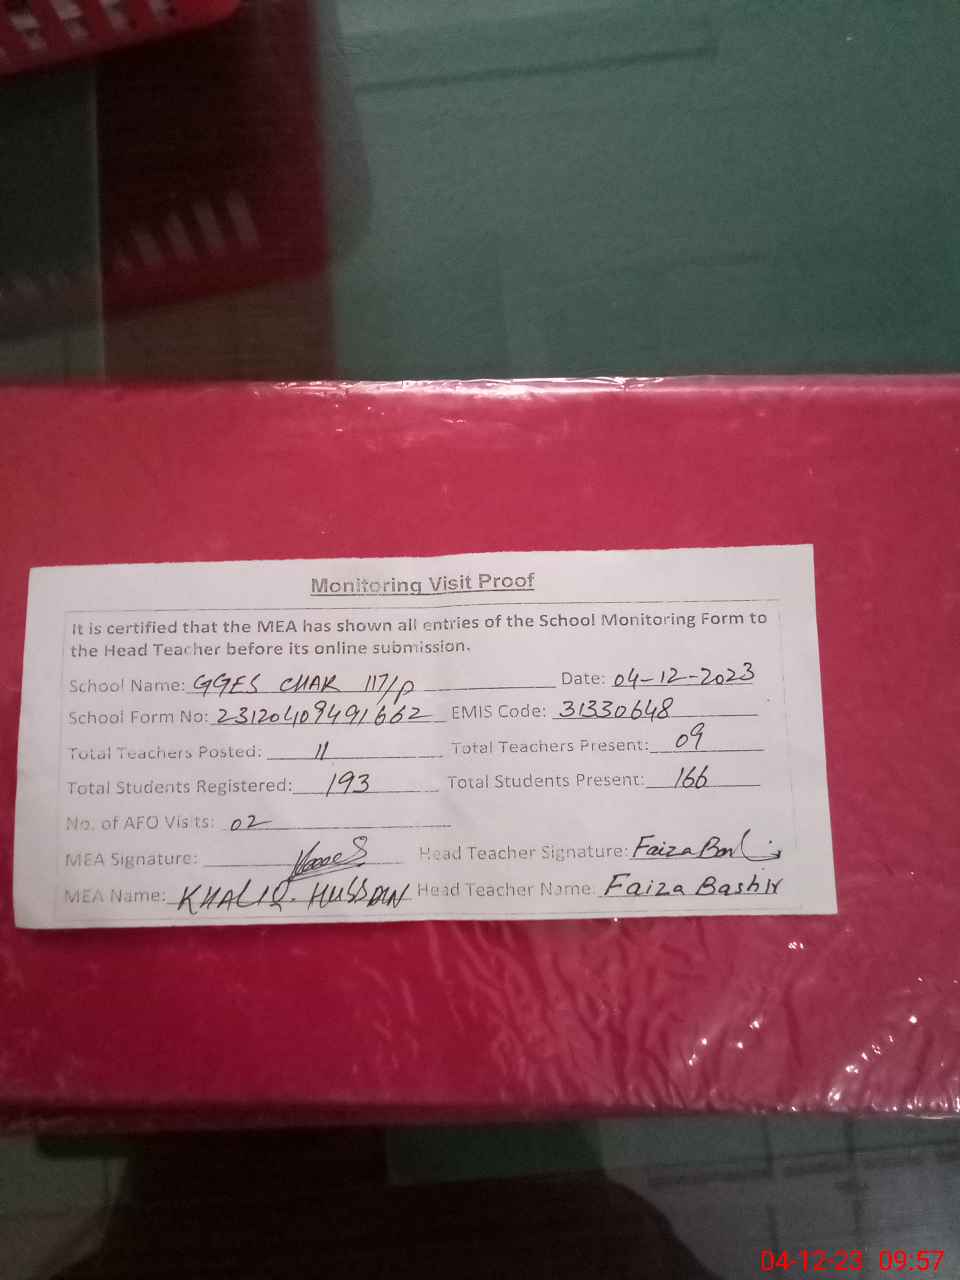 Monitoring Visit Proof
It is certified that the MEA has shown all entries of the School Monitoring Form to
the Head Teacher before its online submission.
School Name: GGES CHAK 117/P Date: 04-12-2023
School Form No: 231204109491662 EMIS Code: 31330648
Total Teachers Posted: 11 Total Teachers Present: 09
Total Students Registered: 193 Total Students Present: 166
No. of AFO Visits: 02
MEA Signature: Head Teacher Signature: Faiza
MEA Name: KHALIQ. HUSSAIN Head Teacher Name: Faiza Bashir
04-12-23 09:57